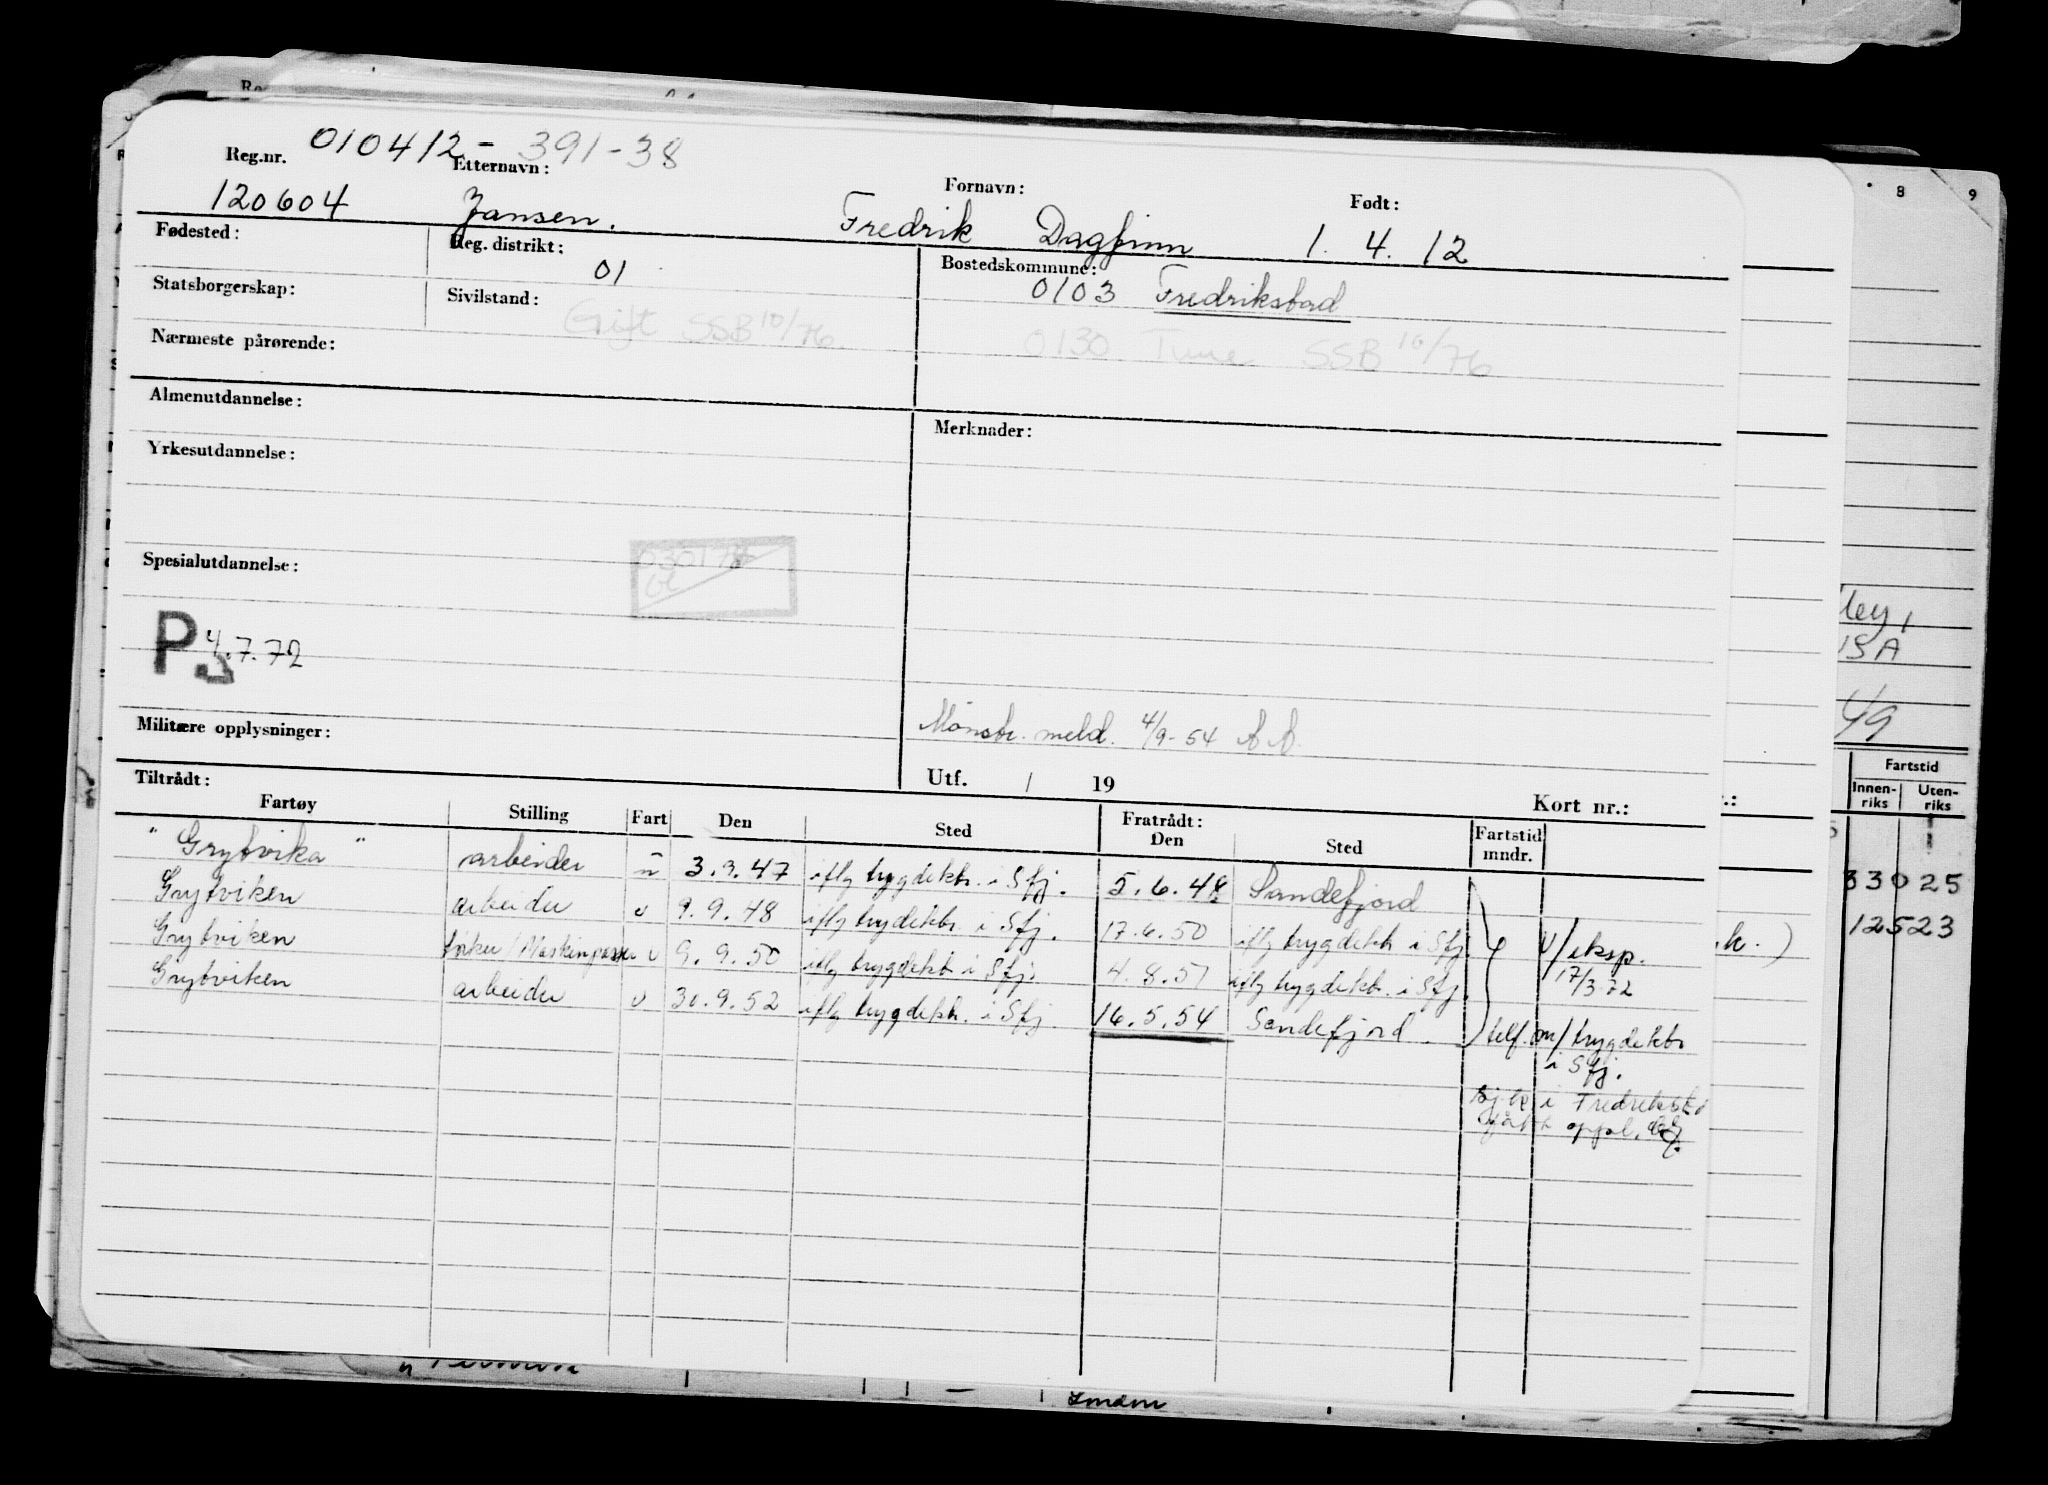 010412-391-38
Reg.nr. Etternavn: Fornavn: Født:
120604 Jansen. Fredrik Dagfinn 1. 4. 12
Fødested: Reg. distrikt: 01 Bostedskommune: 0103 Fredriksstad
Statsborgerskap: Sivilstand: Gift SSB 10/76. 0130 Tune SSB 10/76
Nærmeste pårørende:
Almenutdannelse: Merknader:
Yrkesutdannelse:
Spesialutdannelse:
P. 4.7.72
Militære opplysninger: Mønstr. meld. 4/9-54
Tiltrådt: Utf. / 19 Kort nr.:
Fartøy Stilling Fart Den Sted Fratrådt: Den Sted Fartstid mndr.
"Grytvika" arbeider u 3.3.47 iflg trygdektr. i Sfj. 5.6.48 Sandefjord
Grytviken arbeider u 9.9.48 iflg trygdektr. i Sfj. 17.6.50 iflg trygdektr i Sfj.
Grytviken u 9.9.50 iflg trygdektr i Sfj. 4.8.51 iflg trygdektr. i Sfj.
Grytviken arbeider u 30.9.52 iflg trygdektr. i Sfj. 16.5.54 Sandefjord
u/eksp.
17/3 72
telf. m/trygdektr
i Sfj.
i Fredrikstad
oppl.
8 9
ley,
USA
4/9
Fartstid
Innen-riks Uten-riks
330 25
125 23
k.)